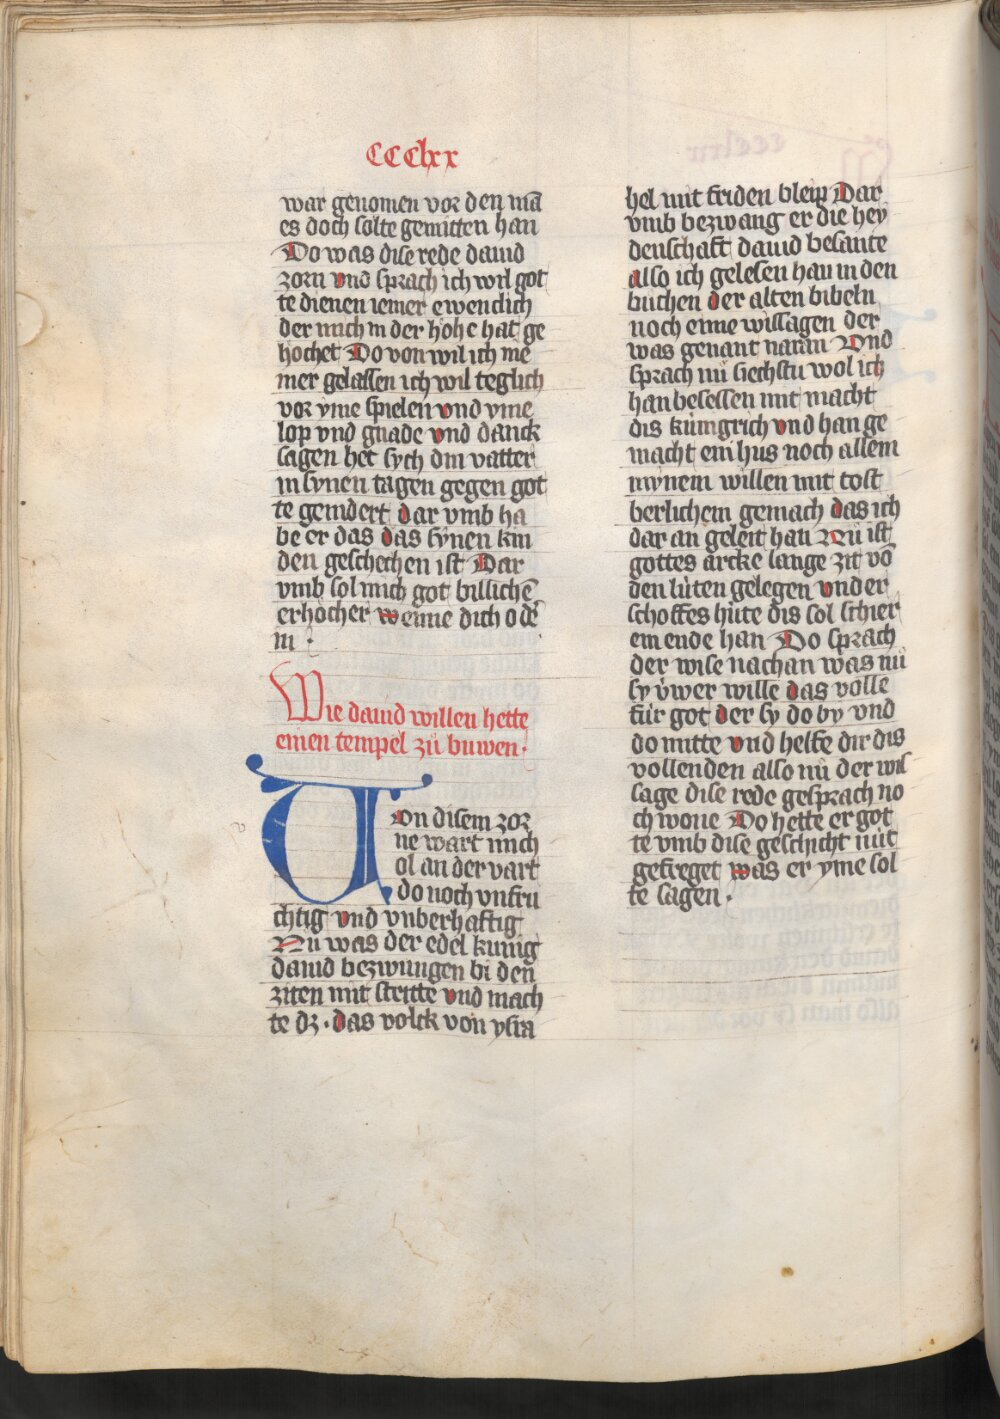 CCClxx
war genomen vor den mā
es doch solte gemitten han
Do was dise rede dauid
zorn vnd sprach ich wil got
te dienen iemer ewenclich
der mich in der hohe hat ge
hochet Do von wil ich nie
mer gelassen ich wil teglich
vor yme spielen vnd yme
lop vnd gnade vnd danck
sagen het sych din vatter
in synen tagen gegen got
te gemdert dar vmb ha
be er das das synen kin
den geschechen ist Dar
vmb sol mich got billichē
erhocher wenne dich o dē
ni
Wie dauid willen hette
einen tempel zů buwen
Von disem zor
ne wart mich
ol an der vart
do noch vnfru
chtig vnd vnberhaftig
Nu was der edel kunig
dauid bezwungen bi den
ziten mit steitte vnd mach
te dz · das volck von ysra
hel mit friden bleip Dar
vmb bezwang er die hey
denschaft dauid besante
also ich gelesen han in den
buchen der alten bibeln
noch eime wissagen der
was genant natan Vnd
sprach nu siechstu wol ich
han besessen mit macht
dis kůnigrich vnd han ge
macht ein hus noch allem
mynem willen mit cost
berlichem gemach das ich
dar an geleit han Nů ist
gottes arcke lange zit vō
den lůten gelegen vnder
schoffes hůte dis sol schier
ein ende han Do sprach
der wise nachan was nů
sy ůwer wille das volle
fůr got der sy do by vnd
do mitte vnd helfe dir dis
vollenden also nu der wis
sage dise rede gesprach no
ch wone Do hette er got
te vmb dise geschicht nůt
gefreget was er yme sol
te sagen ·